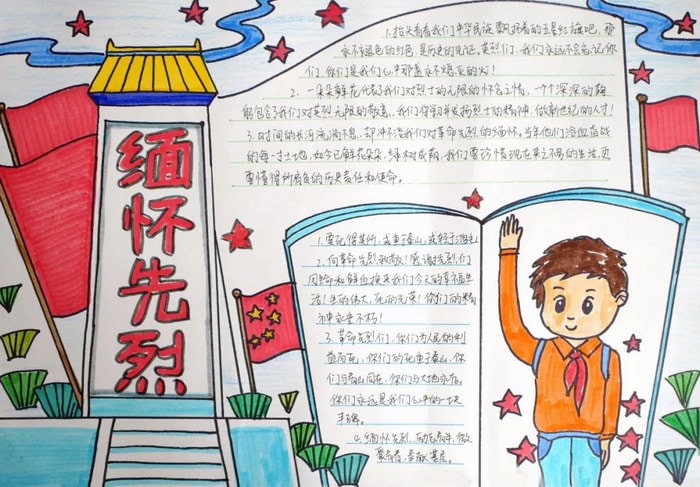 缅怀先烈
1. 抬头看看我们中华民族飘扬着的五星红旗吧，那
永不褪色的红色，是历史的见证，英烈们，我们永远不会忘记你
们，你们是我们心中那盏永不熄灭的灯！
2. 一朵朵鲜花代表了我们对烈士的无限的怀念之情，一个个深深的鞠
躬包含了我们对英烈无限的敬意，我们将努力发扬烈士的精神，做新世纪的人才！
3. 时间的长河流淌不息，却冲不淡我们对革命先烈的缅怀，当年他们浴血奋战
的每一寸土地，如今已鲜花朵朵，绿树成荫，我们要珍惜现在来之不易的生活，更
要懂得所肩负的历史责任和使命。
1. 要死得其所，或重于泰山，或轻于鸿毛
2. 向革命先烈致敬！感谢先烈们
用生命和鲜血换来我们今天的幸福生
活！生的伟大，死的光荣！你们的精
神永垂不朽！
3. 革命先烈们，你们为人民的利
益而死，你们的死重于泰山，你
们与泰山同在，你们与大地永存，
你们永远是我们心中的一块
丰碑。
4. 缅怀先烈，励志青年，做
奉献者，奉献基层。